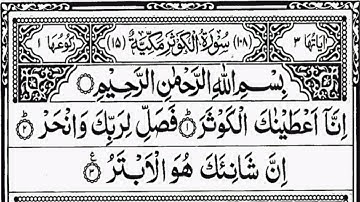 اٰیَاتُهَا ۳ (۱۰۸) سُوْرَةُ الْكَوْثَرِ مَكِّیَّةٌ (۱۵) رُكُوْعُهَا ۱
بِسْمِ اللهِ الرَّحْمٰنِ الرَّحِیْمِ
اِنَّاۤ اَعْطَیْنٰكَ الْكَوْثَرَ ۱ فَصَلِّ لِرَبِّكَ وَانْحَرْ ۲
اِنَّ شَانِئَكَ هُوَ الْاَبْتَرُ ۳